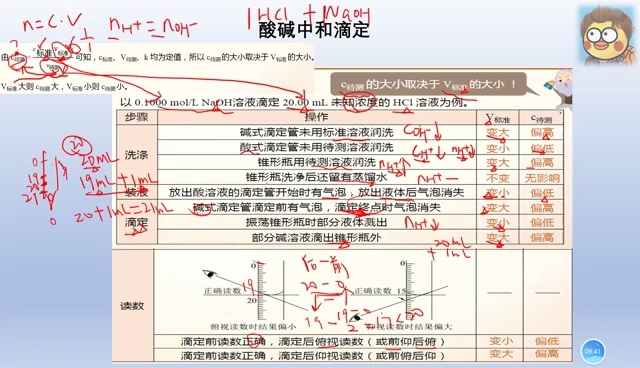 1HCl + NaOH
n=C·V
nH+ = nOH-
酸碱中和滴定
可知，c标准、V待测、k 均为定值，所以 c待测的大小取决于 V标准的大小。
V标准大则 c待测大，V标准小则 c待测小。
c待测的大小取决于 V标准的大小！
以 0.1000 mol/L NaOH溶液滴定 20.00 mL 未知浓度的 HCl 溶液为例。
步骤 操作 V标准 c待测
洗涤
碱式滴定管未用标准溶液润洗 变大 偏高
酸式滴定管未用待测溶液润洗 变小 偏低
锥形瓶用待测溶液润洗 变大 偏高
锥形瓶洗净后还留有蒸馏水 不变 无影响
装液 放出酸溶液的滴定管开始时有气泡，放出液体后气泡消失 变小 偏低
滴定
碱式滴定管滴定前有气泡，滴定终点时气泡消失 变大 偏高
振荡锥形瓶时部分液体溅出 变小 偏低
部分碱溶液滴出锥形瓶外 变大 偏高
20mL
19mL +1mL
20+1mL=21mL
+20mL
1mL
后-前
20-0
读数
正确读数 20
俯视读数时结果偏小
正确读数 15
仰视读数时结果偏大
滴定前读数正确，滴定后俯视读数（或前仰后俯） 变小 偏低
滴定前读数正确，滴定后仰视读数（或前俯后仰） 变大 偏高
09:41